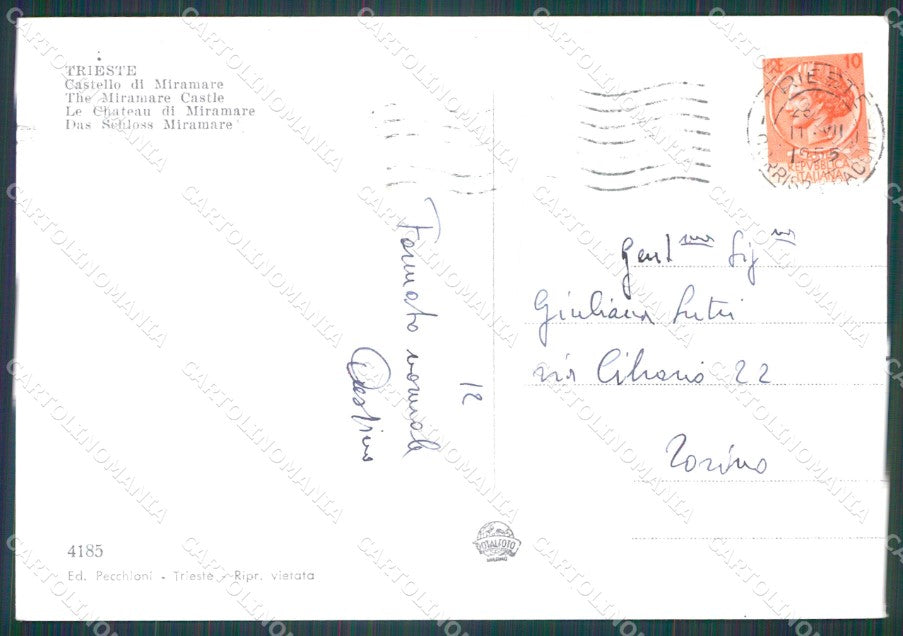 TRIESTE
Castello di Miramare
The Miramare Castle
Le Chateau di Miramare
Das Schloss Miramare
10
TRIESTE
11·VII
1955
REPVBBLICA
ITALIANA
Formato normale
12
Gent.ma Sig.na
Giuliana
via Cibrario 22
Torino
4185
Ed. Pecchioni - Trieste - Ripr. vietata
CARTOLINOMANIA